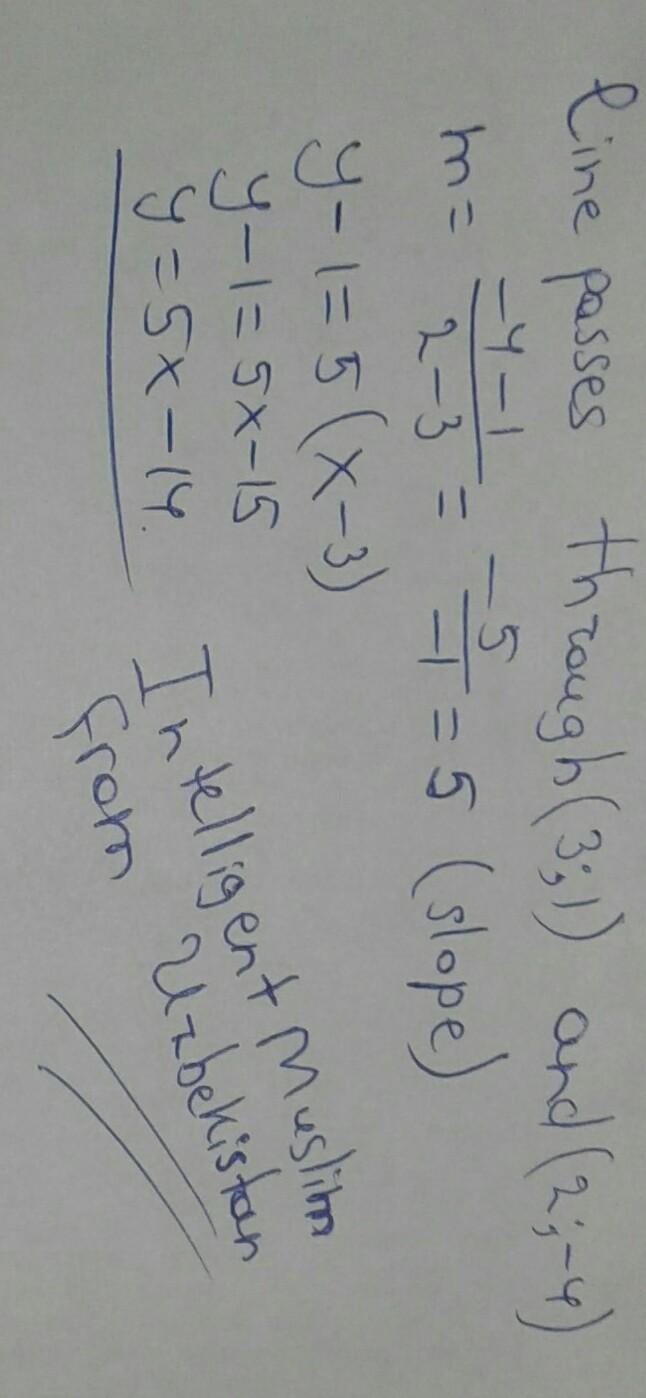 line passes through (3;1) and (2;-4)
m = -4-1 / 2-3 = -5 / -1 = 5 (slope)
y-1=5(x-3)
y-1=5x-15
y=5x-14.
Intelligent Muslim
from Uzbekistan